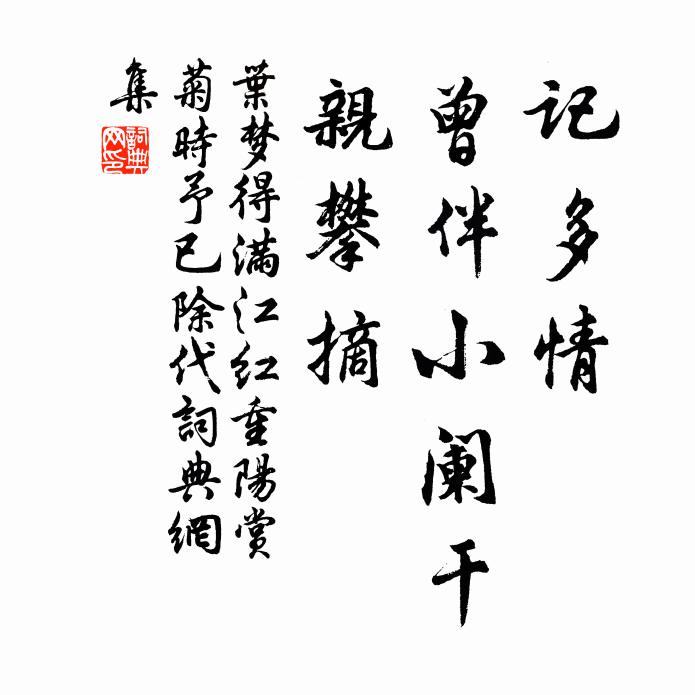 記多情
曾伴小阑干
親攀摘
葉梦得滿江红重陽賞
菊時予已除代詞典網
集
詞典
网印